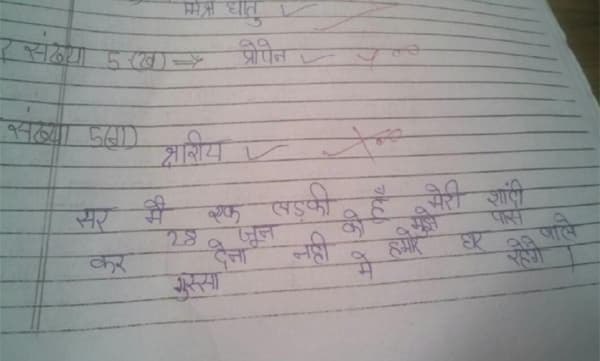 मिश्र धातु
र संख्या 5 (ख) ⇒ प्रोपेन
संख्या 5(ग)
क्षारीय
सर मै एक लड़की हूँ मेरी शादी
28 जून को है मुझे पास
कर देना नही हमारे घर वाले
गुस्सा मे रहेगे।